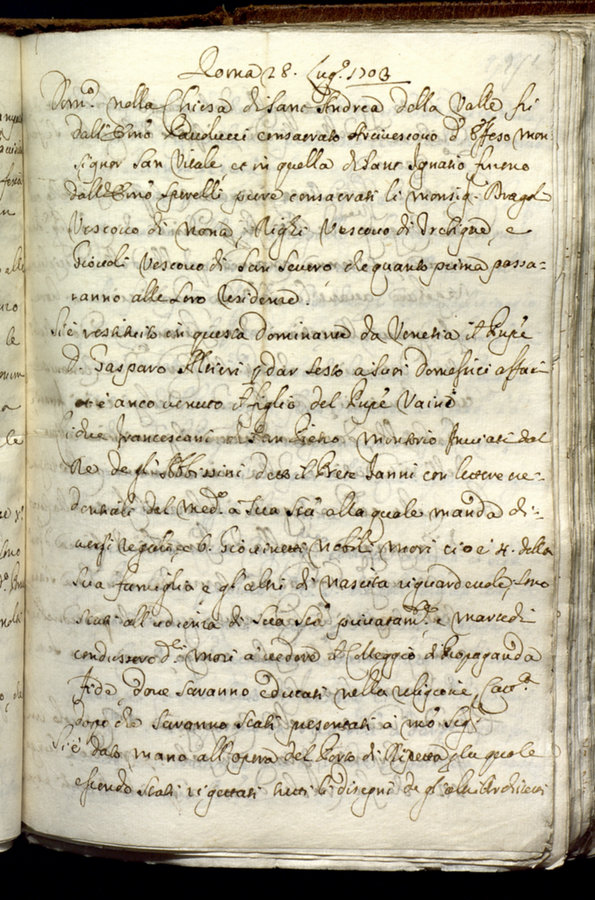 Roma 28. Lug.º 1703
Dom.ca nella Chiesa di Sant Andrea della Valle fù
dall Emō Paolucci consacrato Arcivescovo d Efeso Mon
signor San Vitale et in quella di Sant Ignatio furono
dall Emō Sperelli pure consacrati li monsig.
Vescovo di Nona, Righi Vescovo di e
Vescovo di San Severo che quanto prima passa-
ranno alle loro residenze.
Si è restituito in questa dominante da Venetia il Prñpe
D. Gasparo Altieri p dar sesto a suoi domestici affari
et è anco venuto il figlio del Prñpe Vaini
Li due Francescani di San Pietro Montorio Inviati dal
Rè degl'Abbissini detto il Prete Ianni con lettere cre-
dentiali del med.º a Sua Stà alla quale manda di-
versi regali, e 6. Giovinetti nobili mori cioè 4. della
sua famiglia e gl'altri di nascita riguardevole, sono
stati all'udienza di Sua Stà privatam.te e marcedi
condussero d.ti mori a vedere il Colleggio di Propaganda
Fide, dove saranno educati nella religione Catt.ca
dopo che saranno stati presentati a nrō Sig.re
Si è dato mano all'opera del Porto di Ripetta p la quale
essendo stati rigettati tutti li disegni degl'altri Architetti